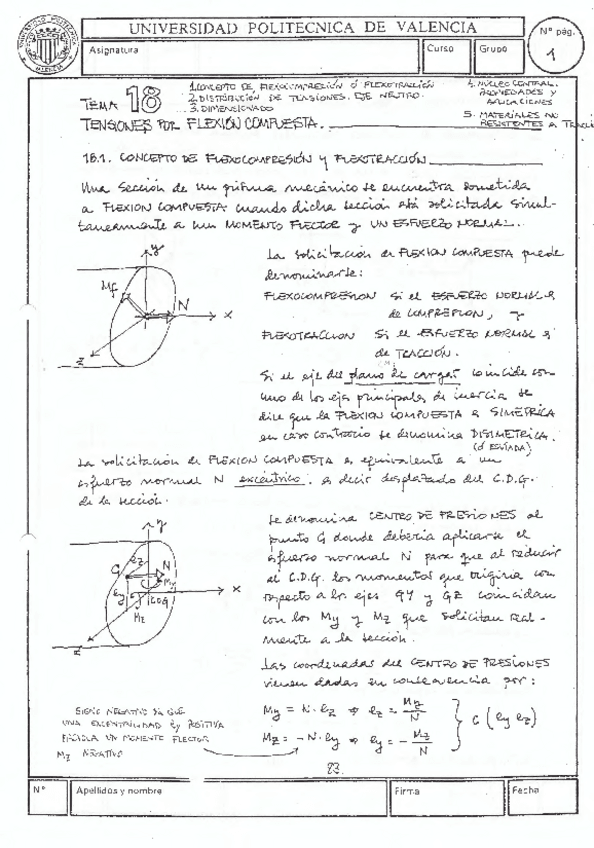 UNIVERSIDAD POLITECNICA DE VALENCIA
Asignatura
Curso
Grupo
Nº pág.
1
TEMA 18
1. CONCEPTO DE FLEXOCOMPRESIÓN Ó FLEXOTRACCIÓN
2. DISTRIBUCIÓN DE TENSIONES. EJE NEUTRO.
3. DIMENSIONADO
4. NÚCLEO CENTRAL. PROPIEDADES Y APLICACIONES
5. MATERIALES NO RESISTENTES A TRACCI
TENSIONES POR FLEXIÓN COMPUESTA.
18.1. CONCEPTO DE FLEXOCOMPRESIÓN Y FLEXOTRACCIÓN
Una sección de un prisma mecánico se encuentra sometida
a FLEXION COMPUESTA cuando dicha sección está solicitada simul-
taneamente a un MOMENTO FLECTOR y UN ESFUERZO NORMAL.
y
Mf
N
x
z
La solicitación de FLEXION COMPUESTA puede
denominarse:
FLEXOCOMPRESION si el ESFUERZO NORMAL es
de COMPRESION, y
FLEXOTRACCION si el ESFUERZO NORMAL es
de TRACCIÓN.
Si el eje del plano de cargas coincide con
uno de los ejes principales de inercia se
dice que la FLEXION COMPUESTA es SIMETRICA
en caso contrario se denomina DISIMETRICA.
(ó ESVIADA)
La solicitación de FLEXION COMPUESTA es equivalente a un
esfuerzo normal N excéntrico. es decir desplazado del C.D.G.
de la sección.
y
G
ez
N
My
ey
CDG
Mz
x
z
Se denomina CENTRO DE PRESIONES al
punto G donde debería aplicarse el
esfuerzo normal N para que al reducir
al C.D.G. los momentos que origina con
respecto a los ejes GY y GZ coincidan
con los My y Mz que solicitan real-
mente a la sección.
Las coordenadas del CENTRO DE PRESIONES
vienen dadas en consecuencia por:
My = N·ez ⇒ ez = My/N
Mz = -N·ey ⇒ ey = -Mz/N
C (ey ez)
SIGNO NEGATIVO YA QUE
UNA EXCENTRICIDAD ey POSITIVA
UN MOMENTO FLECTOR
Mz NEGATIVO
Nº
Apellidos y nombre
Firma
Fecha